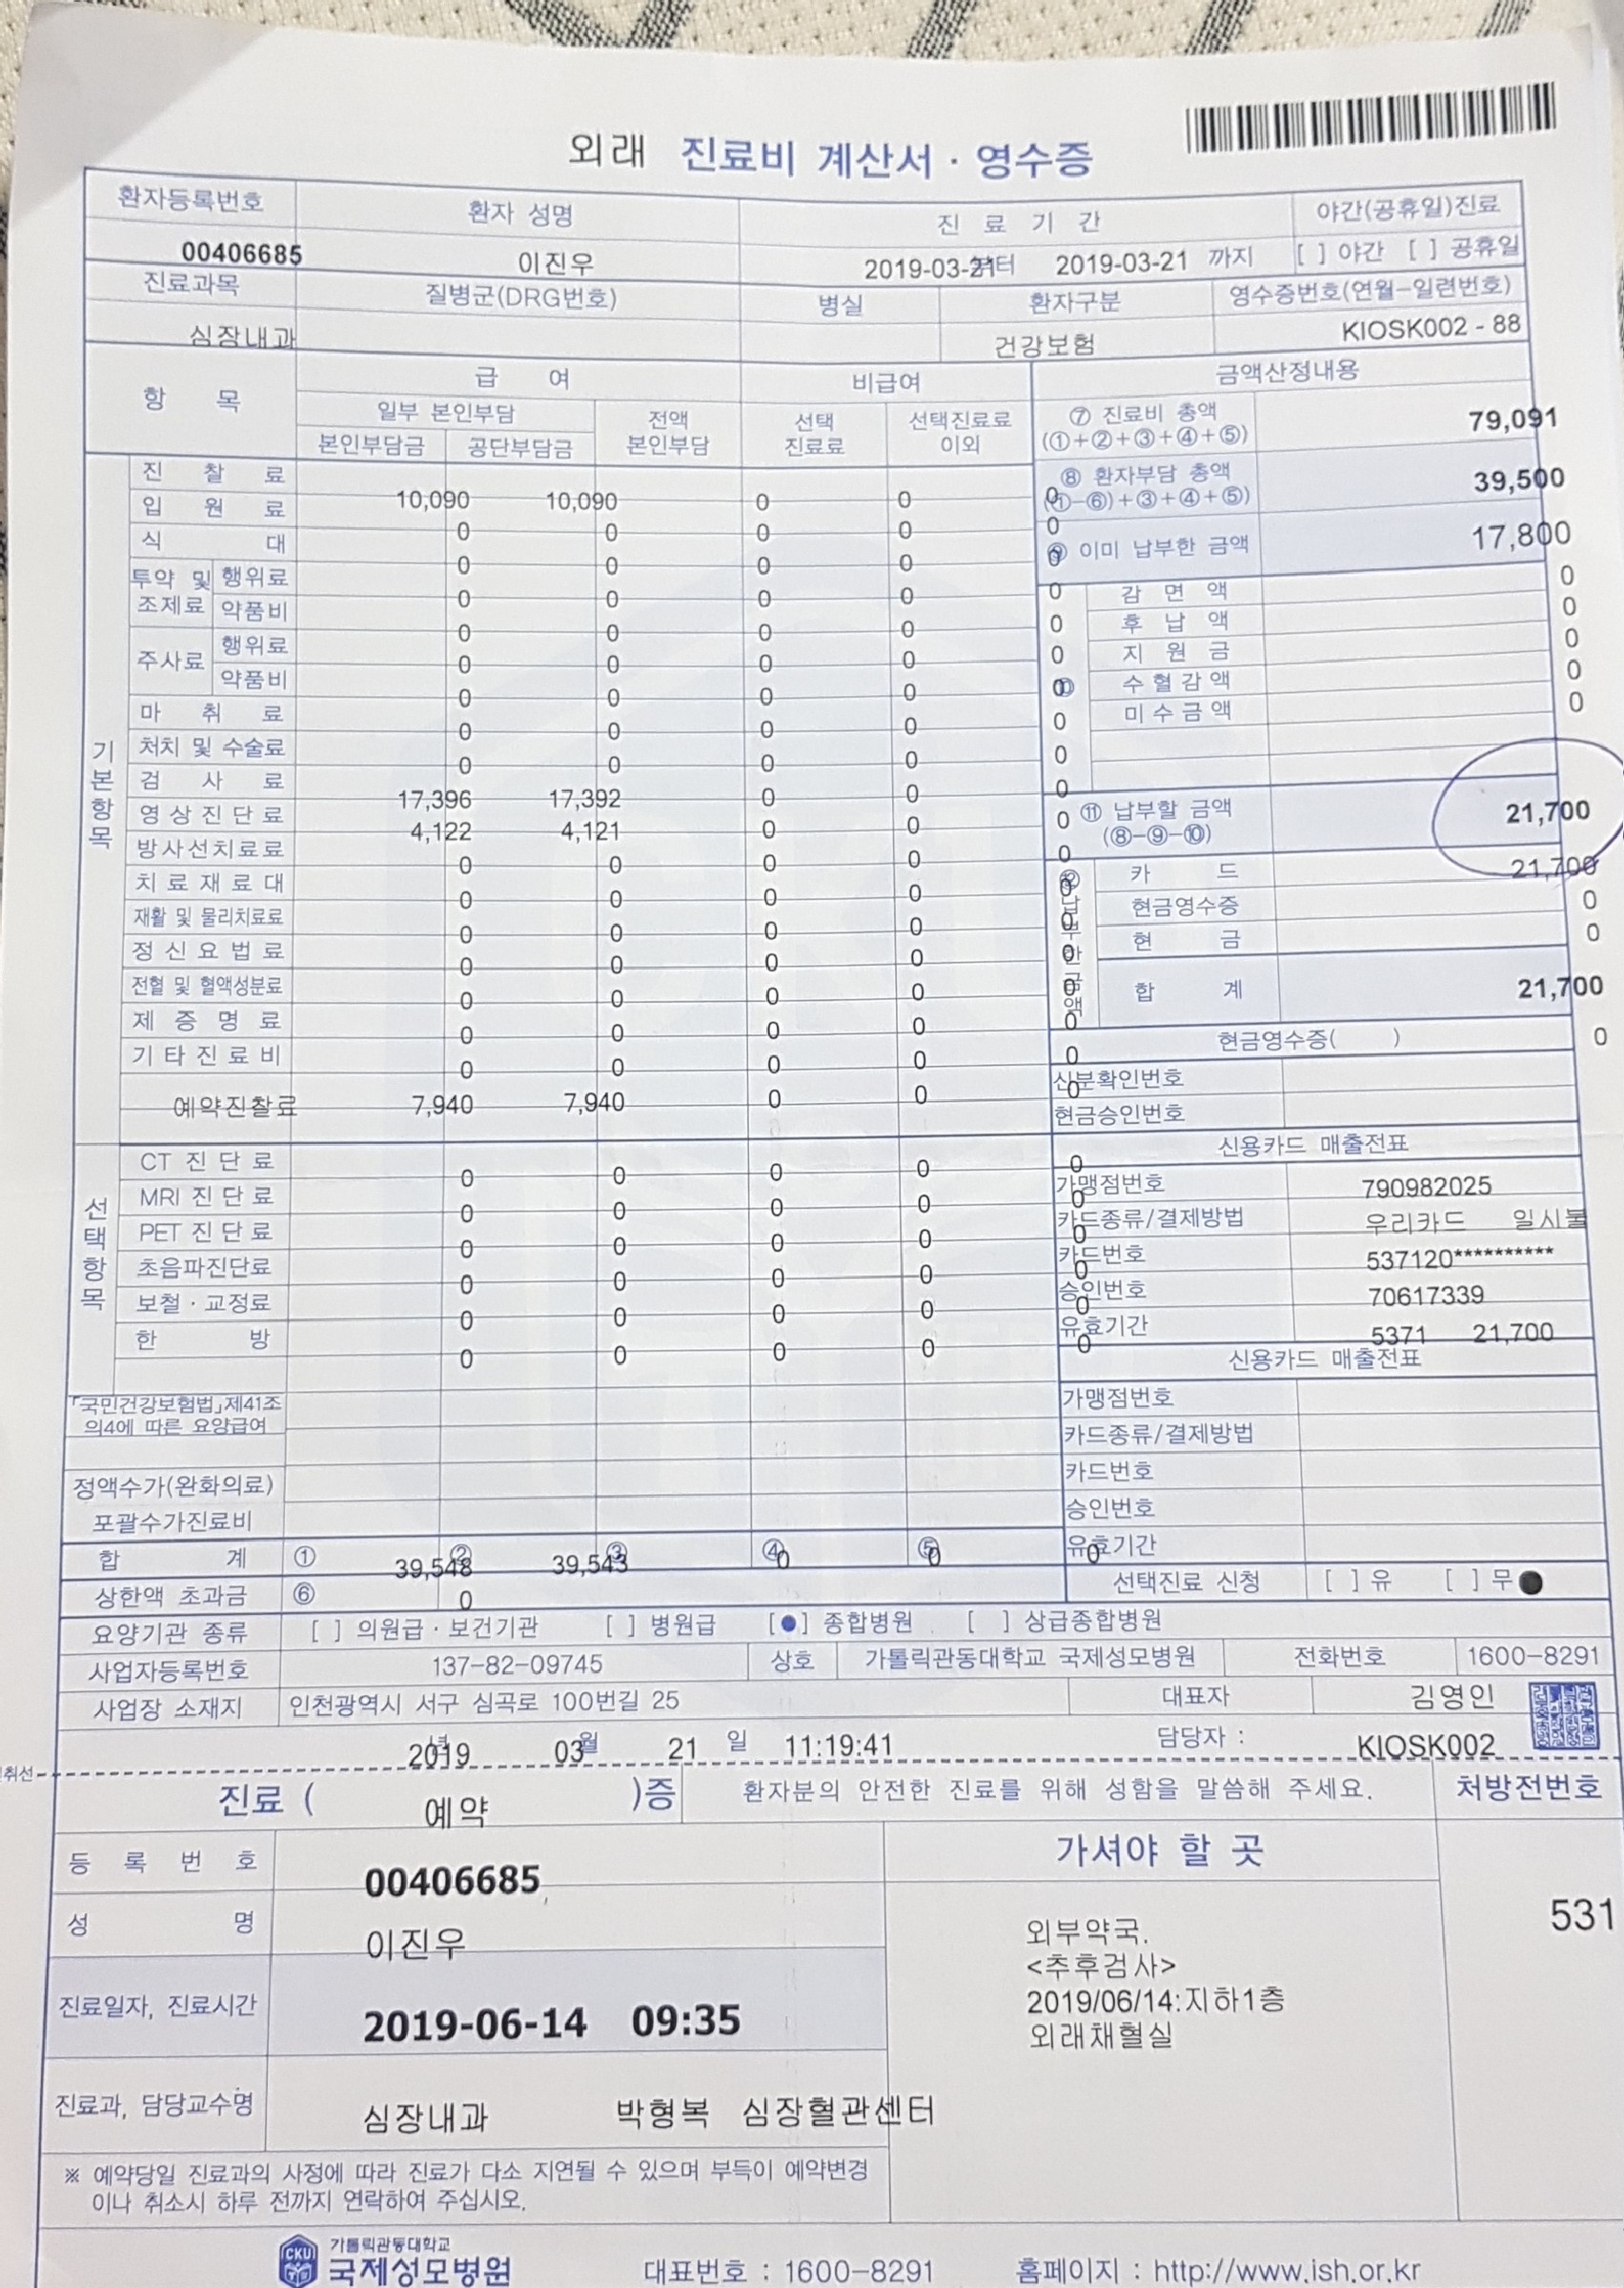 외래 진료비 계산서 · 영수증
환자등록번호 환자 성명 진 료 기 간 야간(공휴일)진료
00406685 이진우 2019-03-21부터 2019-03-21 까지 [ ] 야간 [ ] 공휴일
진료과목 질병군(DRG번호) 병실 환자구분 영수증번호(연월-일련번호)
심장내과 건강보험 KIOSK002 - 88
항 목 급 여 비급여 금액산정내용
일부 본인부담 전액 본인부담 선택 진료료 선택진료료 이외
본인부담금 공단부담금
⑦ 진료비 총액 79,091
(①+②+③+④+⑤)
⑧ 환자부담 총액 39,500
(①-⑥)+③+④+⑤)
⑨ 이미 납부한 금액 17,800
감 면 액 0
후 납 액 0
지 원 금 0
⑩ 수혈감액 0
미수금액 0
⑪ 납부할 금액 21,700
(⑧-⑨-⑩)
⑫ 납부한 금액
카 드 21,700
현금영수증 0
현 금 0
합 계 21,700
현금영수증( ) 0
신분확인번호
현금승인번호
신용카드 매출전표
가맹점번호 790982025
카드종류/결제방법 우리카드 일시불
카드번호 537120**********
승인번호 70617339
유효기간 5371 21,700
신용카드 매출전표
가맹점번호
카드종류/결제방법
카드번호
승인번호
유효기간
선택진료 신청 [ ] 유 [ ] 무 ●
기본항목
진 찰 료 10,090 10,090 0 0 0
입 원 료 0 0 0 0 0
식 대 0 0 0 0 0
투약 및 조제료 행위료 0 0 0 0 0
약품비 0 0 0 0 0
주사료 행위료 0 0 0 0 0
약품비 0 0 0 0 0
마 취 료 0 0 0 0 0
처치 및 수술료 0 0 0 0 0
검 사 료 17,396 17,392 0 0 0
영상진단료 4,122 4,121 0 0 0
방사선치료료 0 0 0 0 0
치료재료대 0 0 0 0 0
재활 및 물리치료료 0 0 0 0 0
정신요법료 0 0 0 0 0
전혈 및 혈액성분료 0 0 0 0 0
제증명료 0 0 0 0 0
기타진료비 0 0 0 0 0
예약진찰료 7,940 7,940 0 0 0
선택항목
CT 진단료 0 0 0 0 0
MRI 진단료 0 0 0 0 0
PET 진단료 0 0 0 0 0
초음파진단료 0 0 0 0 0
보철 · 교정료 0 0 0 0 0
한 방 0 0 0 0 0
「국민건강보험법」제41조
의4에 따른 요양급여
정액수가(완화의료)
포괄수가진료비
합 계 ① 39,548 ② 39,543 ③ ④ 0 ⑤ 0 0
상한액 초과금 ⑥ 0
요양기관 종류 [ ] 의원급 · 보건기관 [ ] 병원급 [●] 종합병원 [ ] 상급종합병원
사업자등록번호 137-82-09745 상호 가톨릭관동대학교 국제성모병원 전화번호 1600-8291
사업장 소재지 인천광역시 서구 심곡로 100번길 25 대표자 김영인
2019 년 03 월 21 일 11:19:41 담당자 : KIOSK002
취선
진료 ( 예약 )증 환자분의 안전한 진료를 위해 성함을 말씀해 주세요. 처방전번호
등 록 번 호 00406685 가셔야 할 곳 531
성 명 이진우
외부약국.
<추후검사>
2019/06/14:지하1층
외래채혈실
진료일자, 진료시간 2019-06-14 09:35
진료과, 담당교수명 심장내과 박형복 심장혈관센터
※ 예약당일 진료과의 사정에 따라 진료가 다소 지연될 수 있으며 부득이 예약변경
이나 취소시 하루 전까지 연락하여 주십시오.
CKU 가톨릭관동대학교
국제성모병원 대표번호 : 1600-8291 홈페이지 : http://www.ish.or.kr